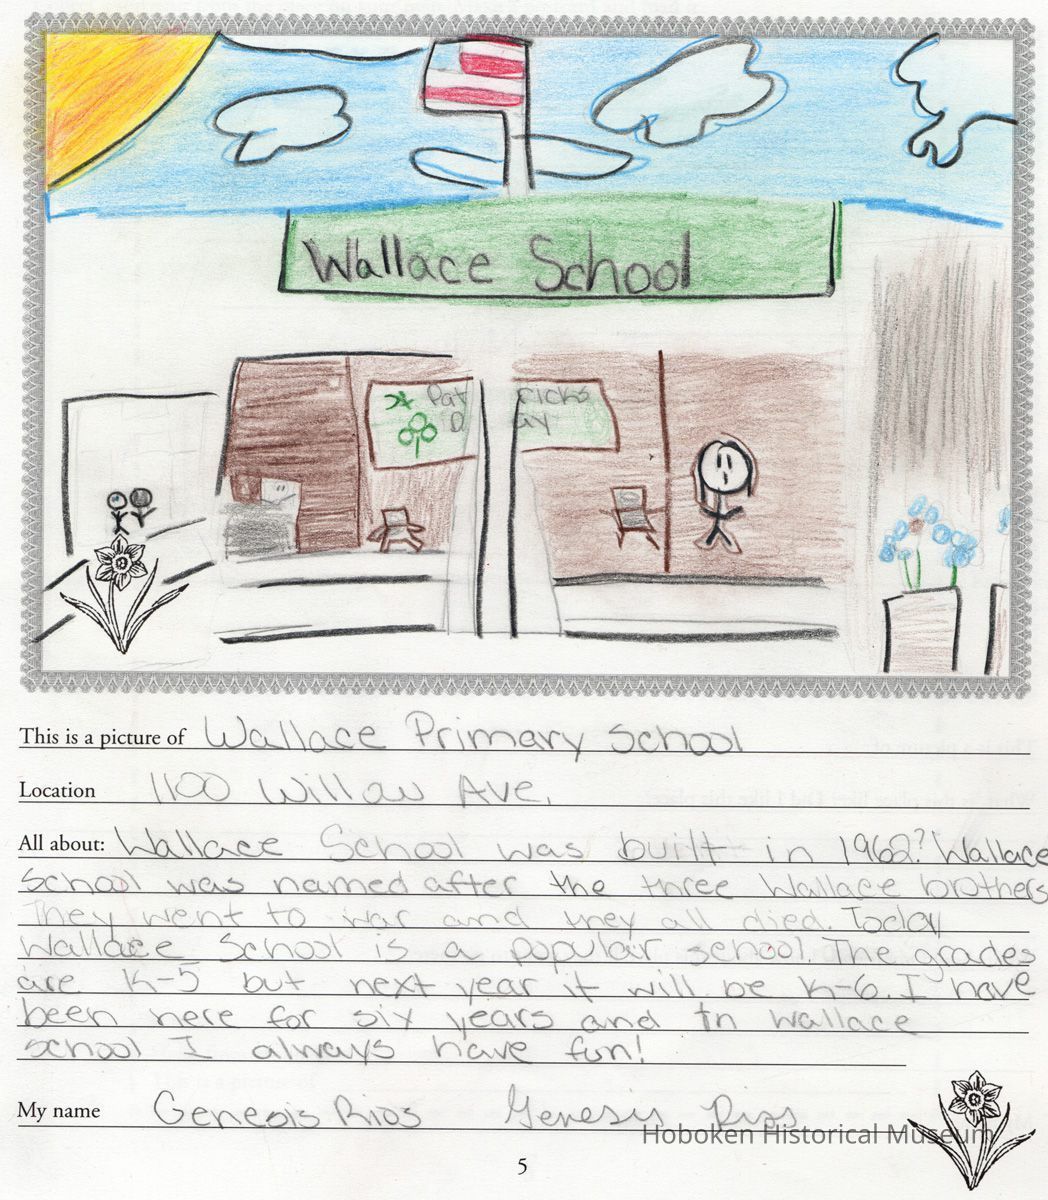 Wallace School
Patricks
Day
This is a picture of Wallace Primary School
Location 1100 Willow Ave.
All about: Wallace School was built in 1962? Wallace
School was named after the three Wallace brothers
They went to war and they all died. Today
Wallace School is a populair school. The grades
are K-5 but next year it will be K-6. I have
been here for six years and In Wallace
school I always have fun!
My name Genesis Rios Genesis Rios
Hoboken Historical Museum
5